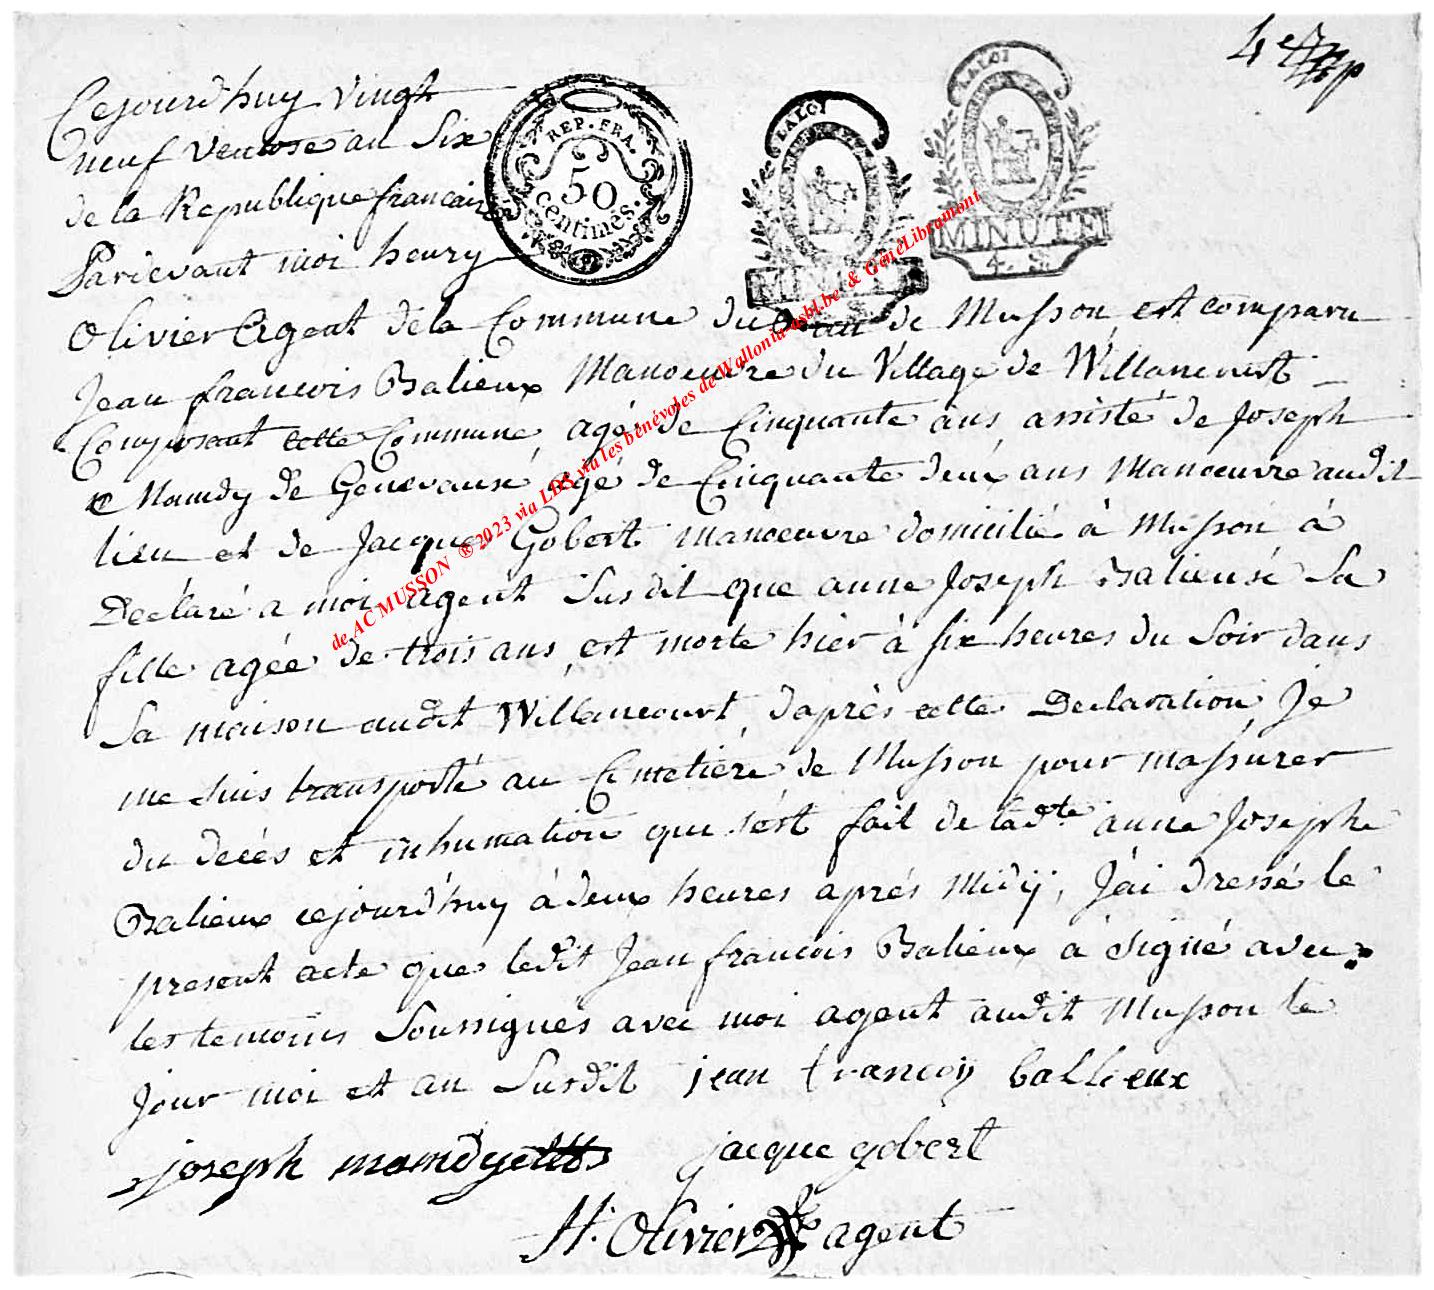 4e
Cejourd'huy vingt
neuf ventose an Six
de la Republique francaise
Pardevant moi henry
REP. FRA.
50
centimes.
LA LOI
MINUTE
LA LOI
MINUTE
4. S.
Olivier Agent de la Commune du de Musson est comparu
Jean francois Balieux Manoeuvre du Village de Willancourt
Composant cette Commune, agé de Cinquante ans, assisté de Joseph
Mamdy de Gennevaux agé de Cinquante deux ans Manoeuvre audit
lieu et de Jacque Gobert manoeuvre domicilié à Musson à
Declaré a moi agent Susdit que anne Joseph Balieux Sa
fille agée de trois ans, est morte hier à six heures du Soir dans
Sa maison audit Willancourt, d'après cette Declaration, Je
me suis transporté au Cimetière de Musson pour m'assurer
du decés et inhumation qui s'est fait de lad.te anne Josephe
Balieux cejourd'huy à deux heures aprés Midij, J'ai dressé le
present acte que ledit Jean francois Balieux a signé avec
les temoins Soussignés avec moi agent audit Musson le
Jour moi et an Susdit jean francoy ballieux
joseph mamdy jacque gobert
H. Olivier agent
de AC MUSSON ® 2023 via LDS via les bénévoles de Wallonia-asbl.be & GénéLibramont